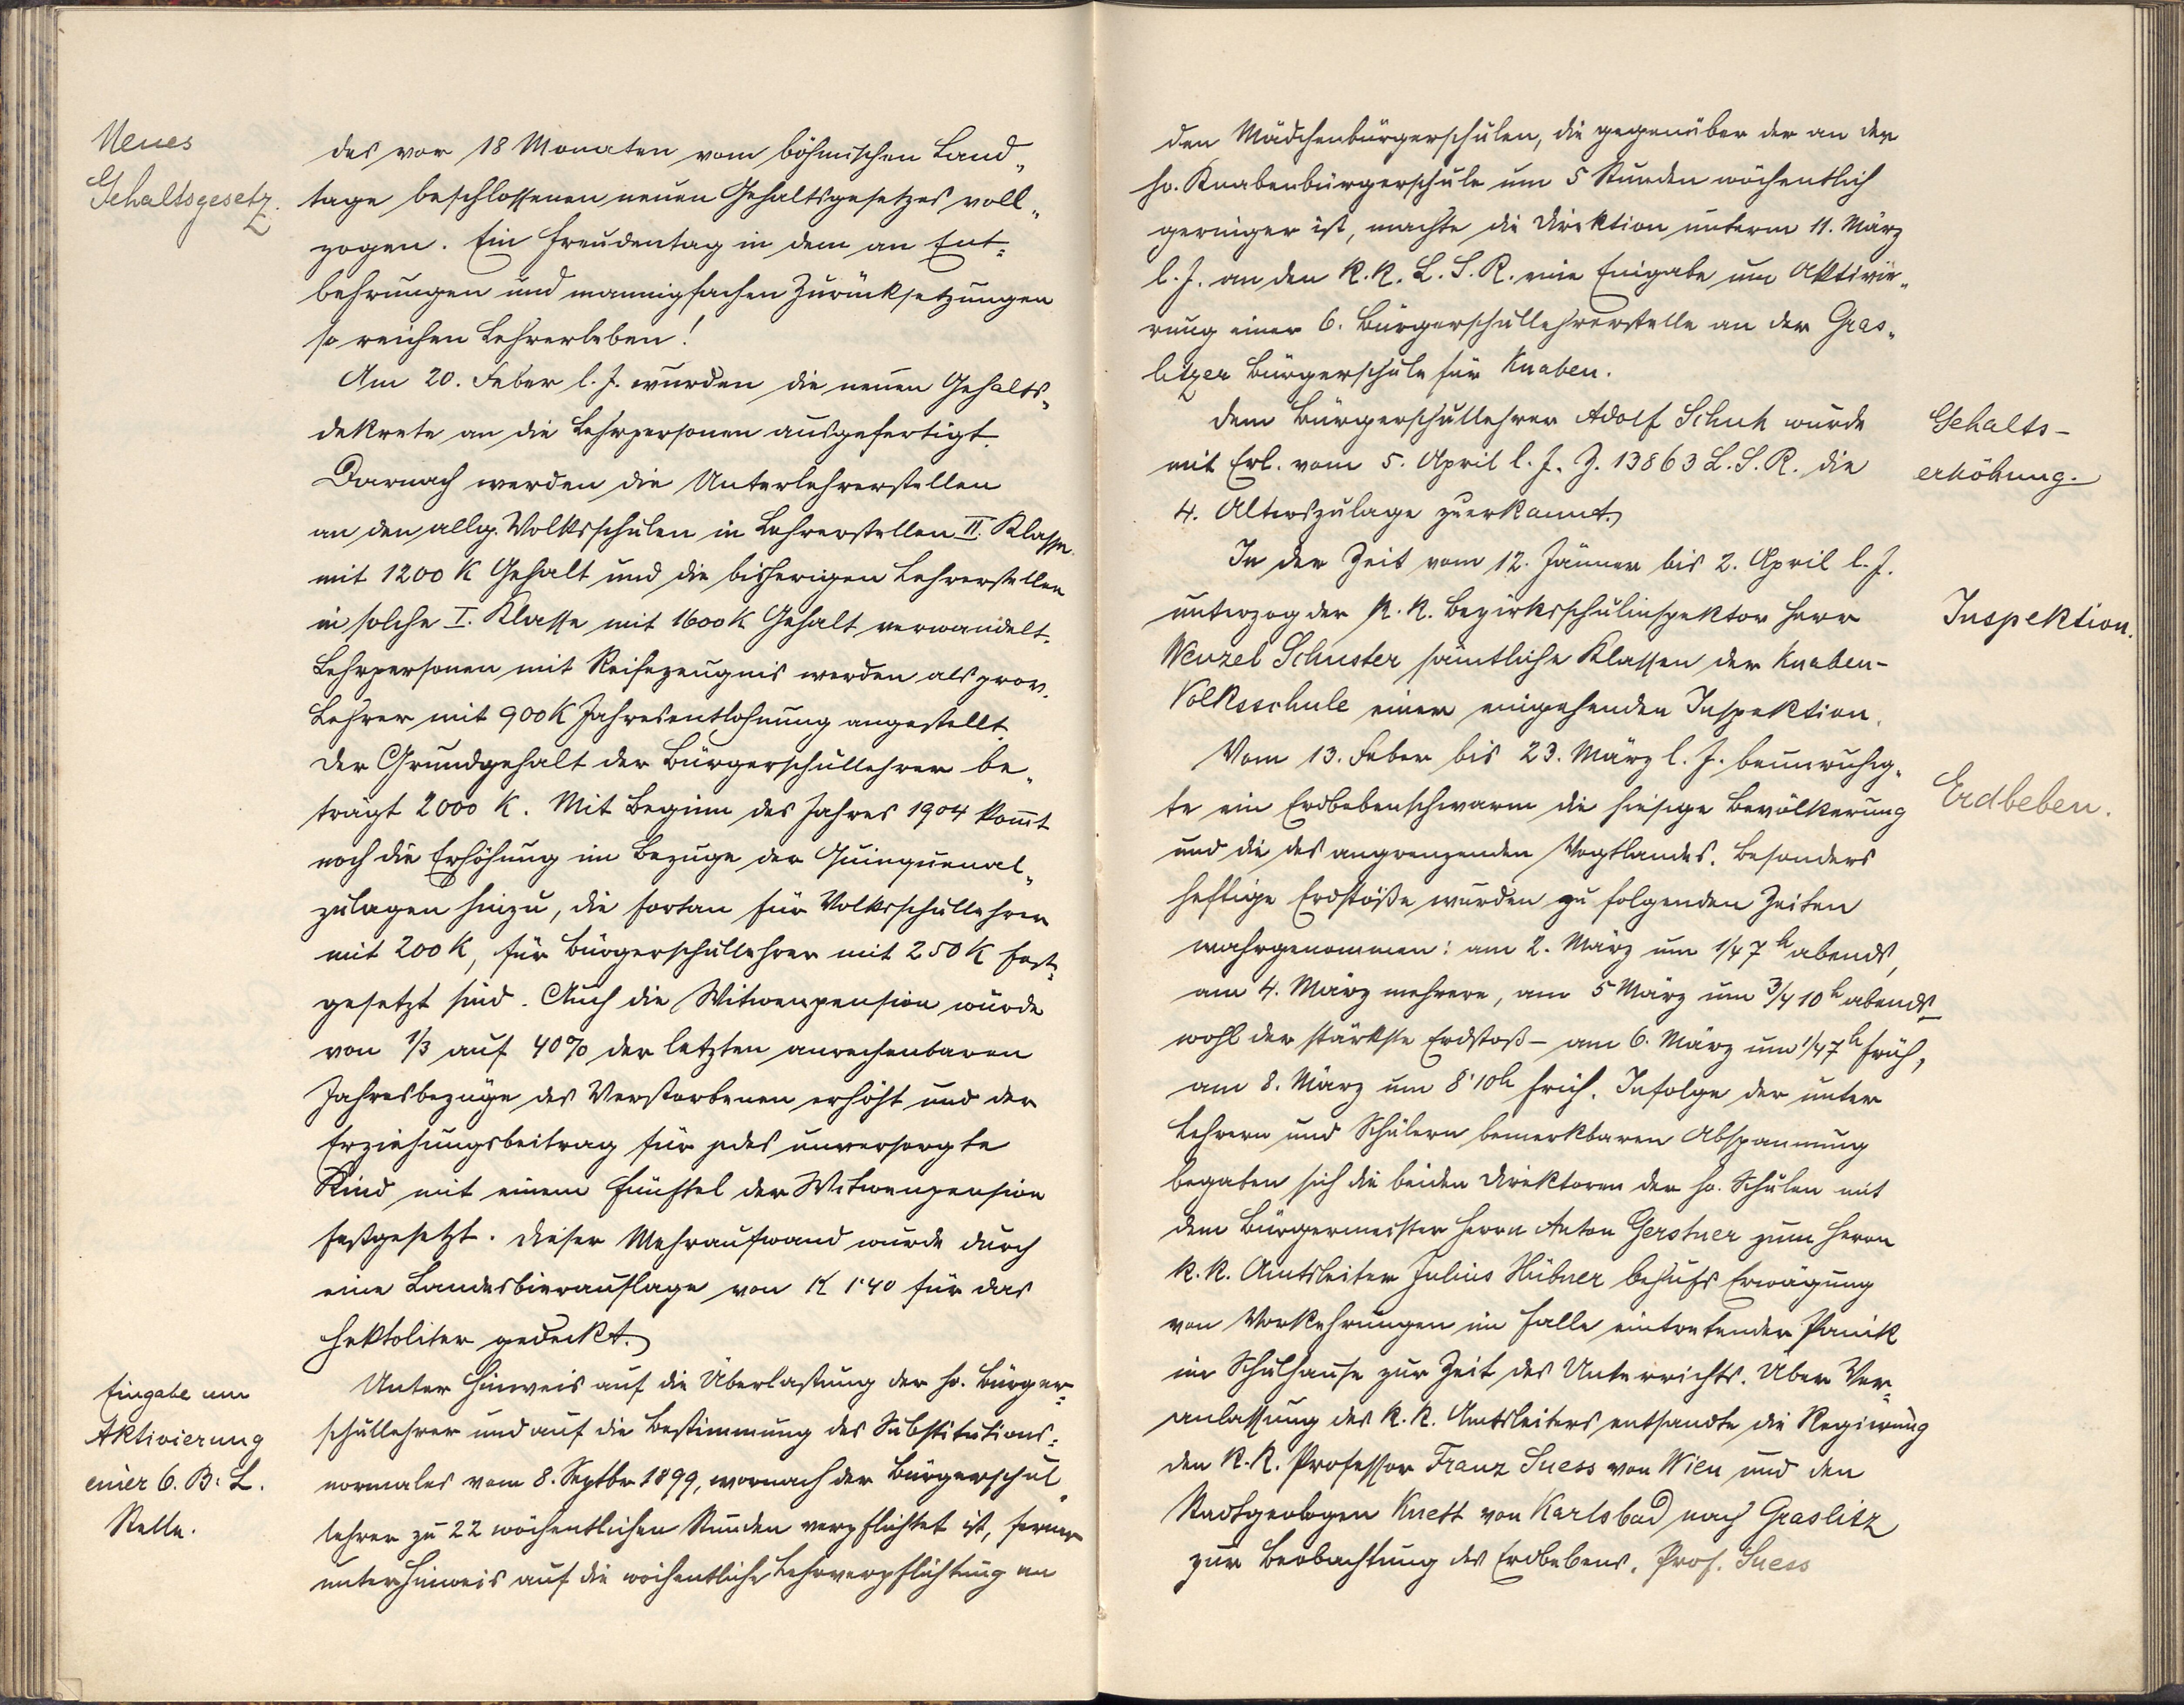 Neues
Gehaltsgesetz.
des vor 18 Monaten vom böhmischen Land-
tage beschlossenen neuen Gehaltsgesetzes voll-
zogen. Ein Freudentag in dem an Ent-
behrungen und mannigfachen Zurücksetzungen
so reichen Lehrerleben!
Am 20. Feber l. J. wurden die neuen Gehalts-
dekrete an die Lehrpersonen ausgefertigt.
Darnach werden die Unterlehrerstellen
an den allg. Volksschulen in Lehrerstellen II. Klasse
mit 1200 K Gehalt und die bisherigen Lehrerstellen
in solche I. Klasse mit 1600 K Gehalt verwandelt.
Lehrpersonen mit Reifezeugnis werden als prov.
Lehrer mit 900 K Jahresentlohnung angestellt.
Der Grundgehalt der Bürgerschullehrer be-
trägt 2000 K. Mit Beginn des Jahres 1904 kom̄t
noch die Erhöhung im Bezuge der Quinquenal-
zulagen hinzu, die fortan für Volksschullehrer
mit 200 K, für Bürgerschullehrer mit 250 K fest-
gesetzt sind. Auch die Witwenpension wurde
von 1/3 auf 40% der letzten anrechenbaren
Jahresbezüge des Verstorbenen erhöht und der
Erziehungsbeitrag für jedes unversorgte
Kind mit einem Fünftel der Witwenpension
festgesetzt. Dieser Mehraufwand wurde durch
eine Landesbierauflage von K 1·40 für das
Hektoliter gedeckt.
Eingabe um
Aktivierung
einer 6. B. L.
Stelle.
Unter Hinweis auf die Überlastung der hs. Bürger-
schullehrer und auf die Bestimmung des Substitutions-
normales vom 8. Septbr 1899, wornach der Bürgerschul-
lehrer zu 22 wöchentlichen Stunden verpflichtet ist, ferner
unter Hinweis auf die wöchentliche Lehrverpflichtung an
den Mädchenbürgerschulen, die gegenüber der an der
hs. Knabenbürgerschule um 5 Stunden wöchentlich
geringer ist, machte die Direktion unterm 11. März
l. J. an den k. k. L. S. R. eine Eingabe um Aktivie-
rung einer 6. Bürgerschullehrerstelle an der Gras-
litzer Bürgerschule für Knaben.
Dem Bürgerschullehrer Adolf Schuh wurde
mit Erl. vom 5. April l. J. Z. 13863 L. S. R. die
4. Alterszulage zuerkannt.
Gehalts-
erhöhung.
In der Zeit vom 12. Jänner bis 2. April l. J.
unterzog der k. k. Bezirksschulinspektor Herr
Wenzel Schuster sämtliche Klassen der Knaben-
Volksschule einer eingehenden Inspektion.
Inspektion.
Vom 13. Feber bis 23. März l. J. beunruhig-
te ein Erdbebenschwarm die hiesige Bevölkerung
und die des angrenzenden Vogtlandes. Besonders
heftige Erdstöße wurden zu folgenden Zeiten
wahrgenommen: am 2. März um 1/4 7 h abends,
am 4. März mehrere, am 5 März um 3/4 10 h abends –
wohl der stärkste Erdstoß – am 6. März um 1/4 7 h früh,
am 8. März um 8·10 h früh. Infolge der unter
Lehrern und Schülern bemerkbaren Abspannung
begaben sich die beiden Direktoren der hs. Schulen mit
dem Bürgermeister Herrn Anton Gerstner zum Herrn
k. k. Amtsleiter Julius Hübner behufs Erwägung
von Vorkehrungen im Falle eintretender Panik
im Schulhause zur Zeit des Unterrichts. Über Ver-
anlassung des k. k. Amtsleiters entsandte die Regierung
den k. k. Professor Franz Suess von Wien und den
Stadtgeologen Knett von Karlsbad nach Graslitz
zur Beobachtung des Erdbebens. Prof. Suess
Erdbeben.